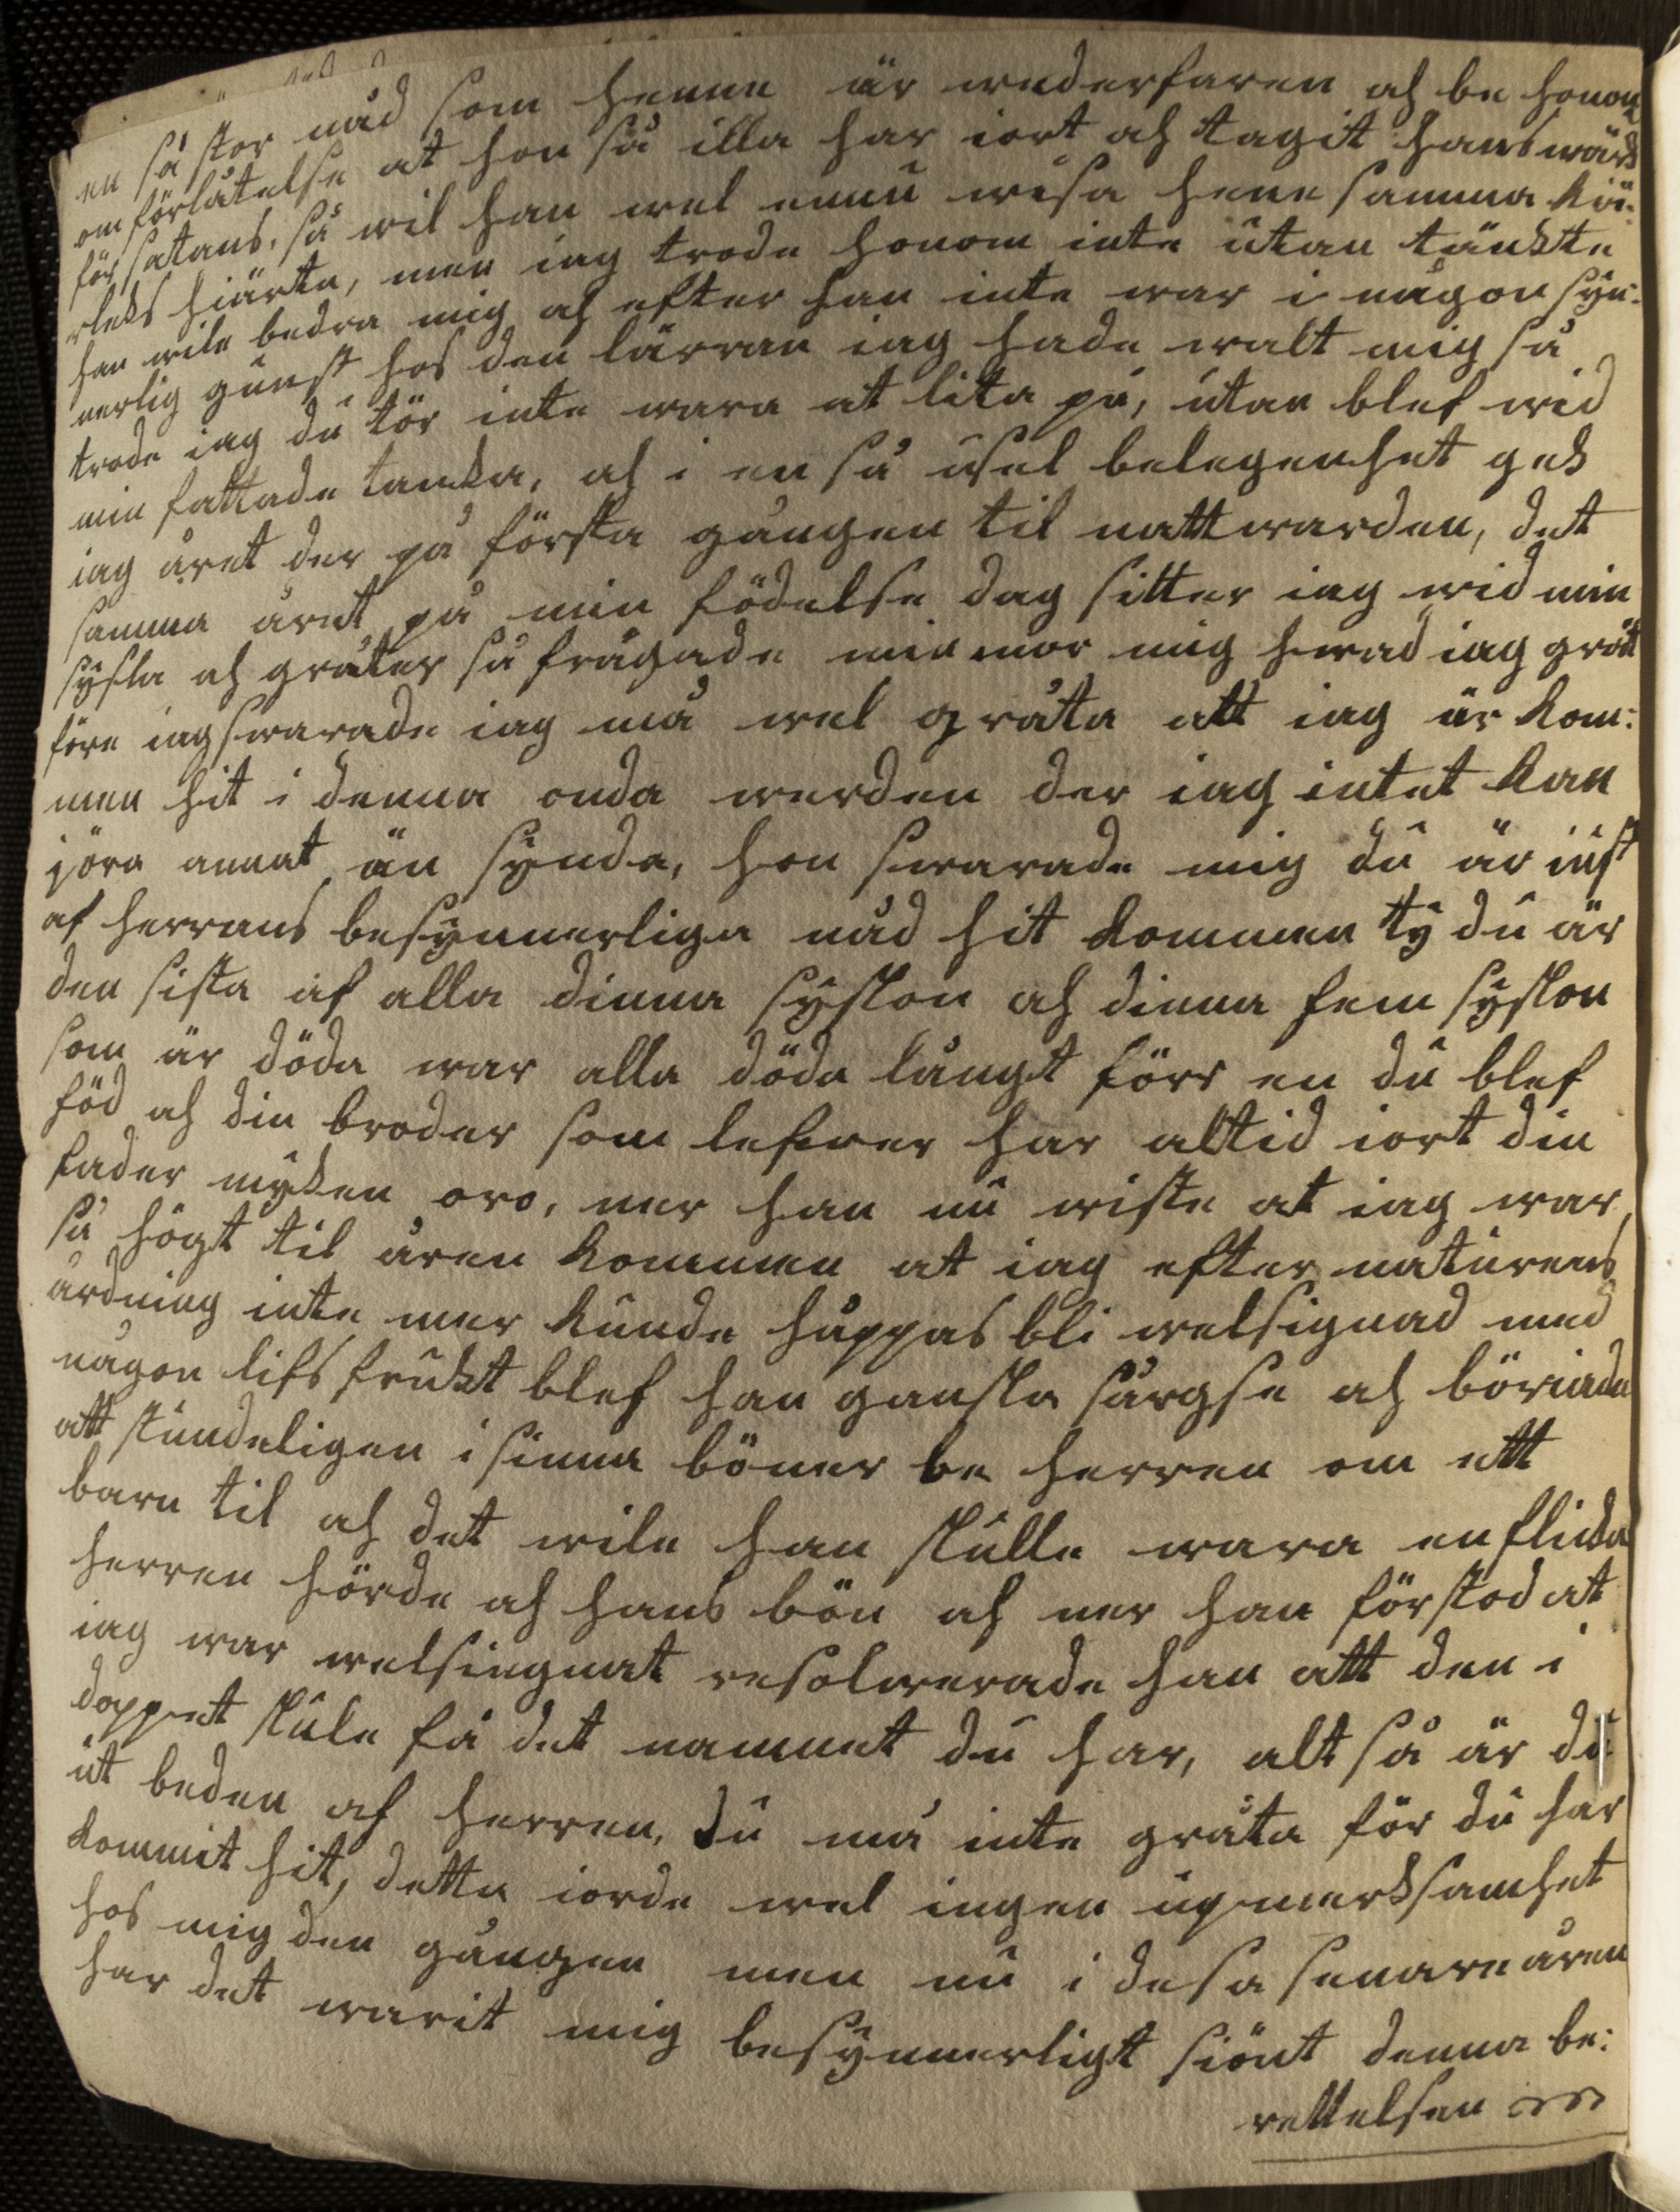 en så stor nåd som henne är wederfaren ah be honom
om förlåtelse at hon så illa har iort ah tagit hans wärk
för satans, så wil han wel ennu wisa hene samma kiä:
rleks hiärta, men iag trode honom inte utan tänkte
han wile bedra mig ah efter han inte war i någon syn:
nerlig gunst hos den lärran iag hade walt mig så
trode iag du tör inte wara at lita på, utan blef wid
min fattade tanka, ah i en så usel belegenhet gek
iag året der på första gången til nattwarden, det
samma året på min födelse dag sitter iag wid min
sysla ah gråter så frågade min mor mig hwad iag gröt
före iag swarade iag må wel gråta att iag är kom:
men hit i denna onda werden der iag intet kan
jöra annat än synda, hon swarade mig du är iust
af herrans besynnerliga nåd hit kommen ty du är
den sista af alla dinna syskon ah dinna fem syskon
som är döda war alla döda långt förr en du blef
föd ah din broder som lefwer har altid iort din
fader myken oro, ner han nu wiste at iag war
så högt til åren kommen at iag efter naturens
årdning inte mer kunde håppas bli welsignad med
nagon lifs frukt blef han ganska sårgse ah böriade
att stundeligen i sinna böner be herren om ett
barn til ah det wile han skulle wara en flicka
herren hörde ah hans bön ah ner han förstod at
iag war welsiegnat resolwerade han att den i
doppet skule få det namnet du har, alt så är du
ut beden af herren, du må inte gråta för du har
kommit hit, detta iorde wel ingen upmerksamhet
hos mig den gången men nu i desa senare åren
har det warit mig besynnerligt siönt denna be:
rettelsen